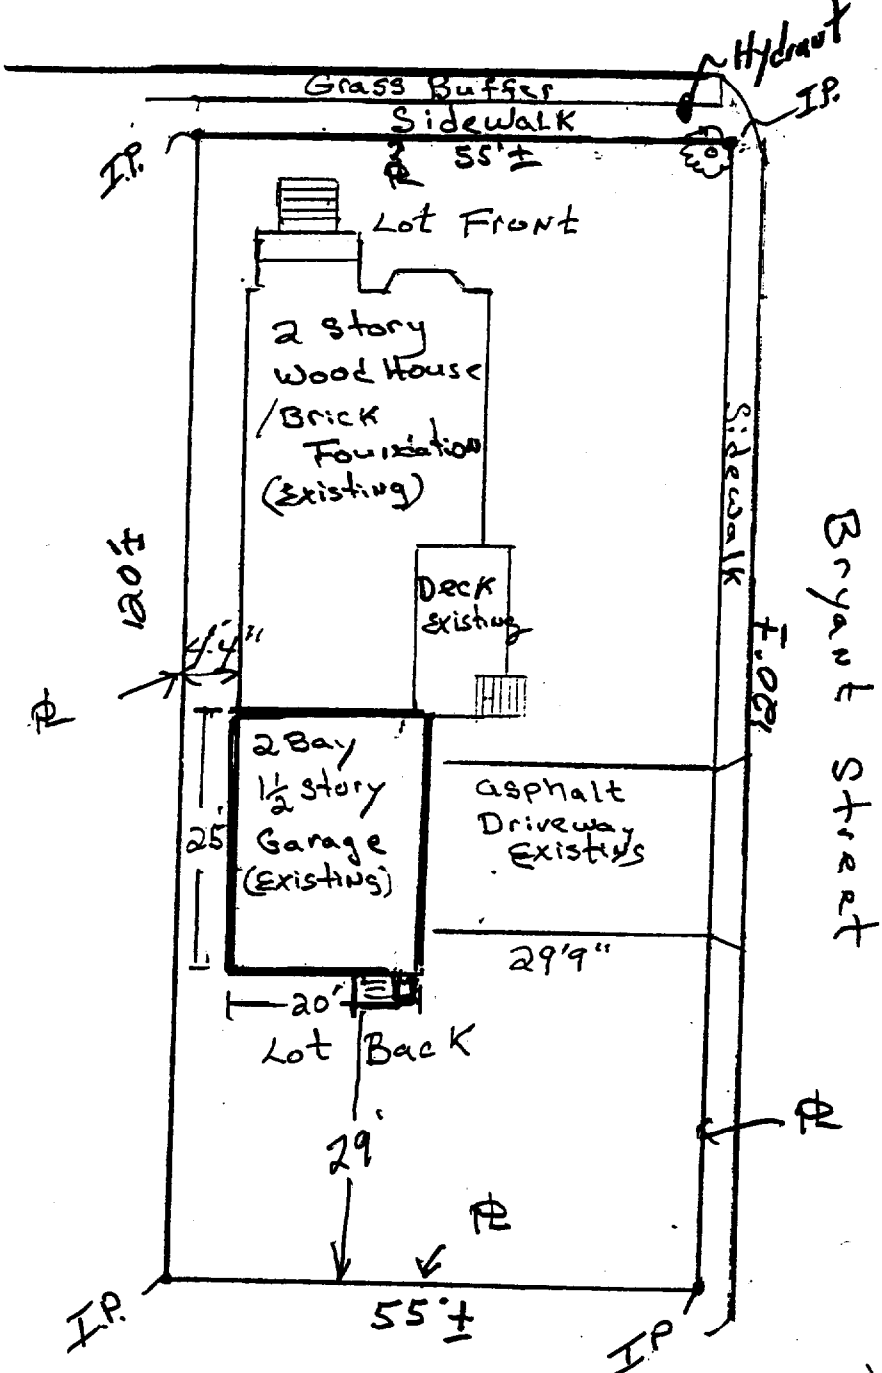 Hydrant
Grass Buffer
I.P.
Sidewalk
I.P.
55'±
PL
Lot Front
2 Story
Wood House
/Brick
Foundation
(Existing)
Sidewalk
Bryant Street
120'±
Deck
Existing
4'.4"
120'±
PL
2 Bay
1½ Story
Garage
(Existing)
25'
Asphalt
Driveway
Existing
29'9"
20'
Lot Back
PL
29'
PL
I.P.
55'±
I.P.